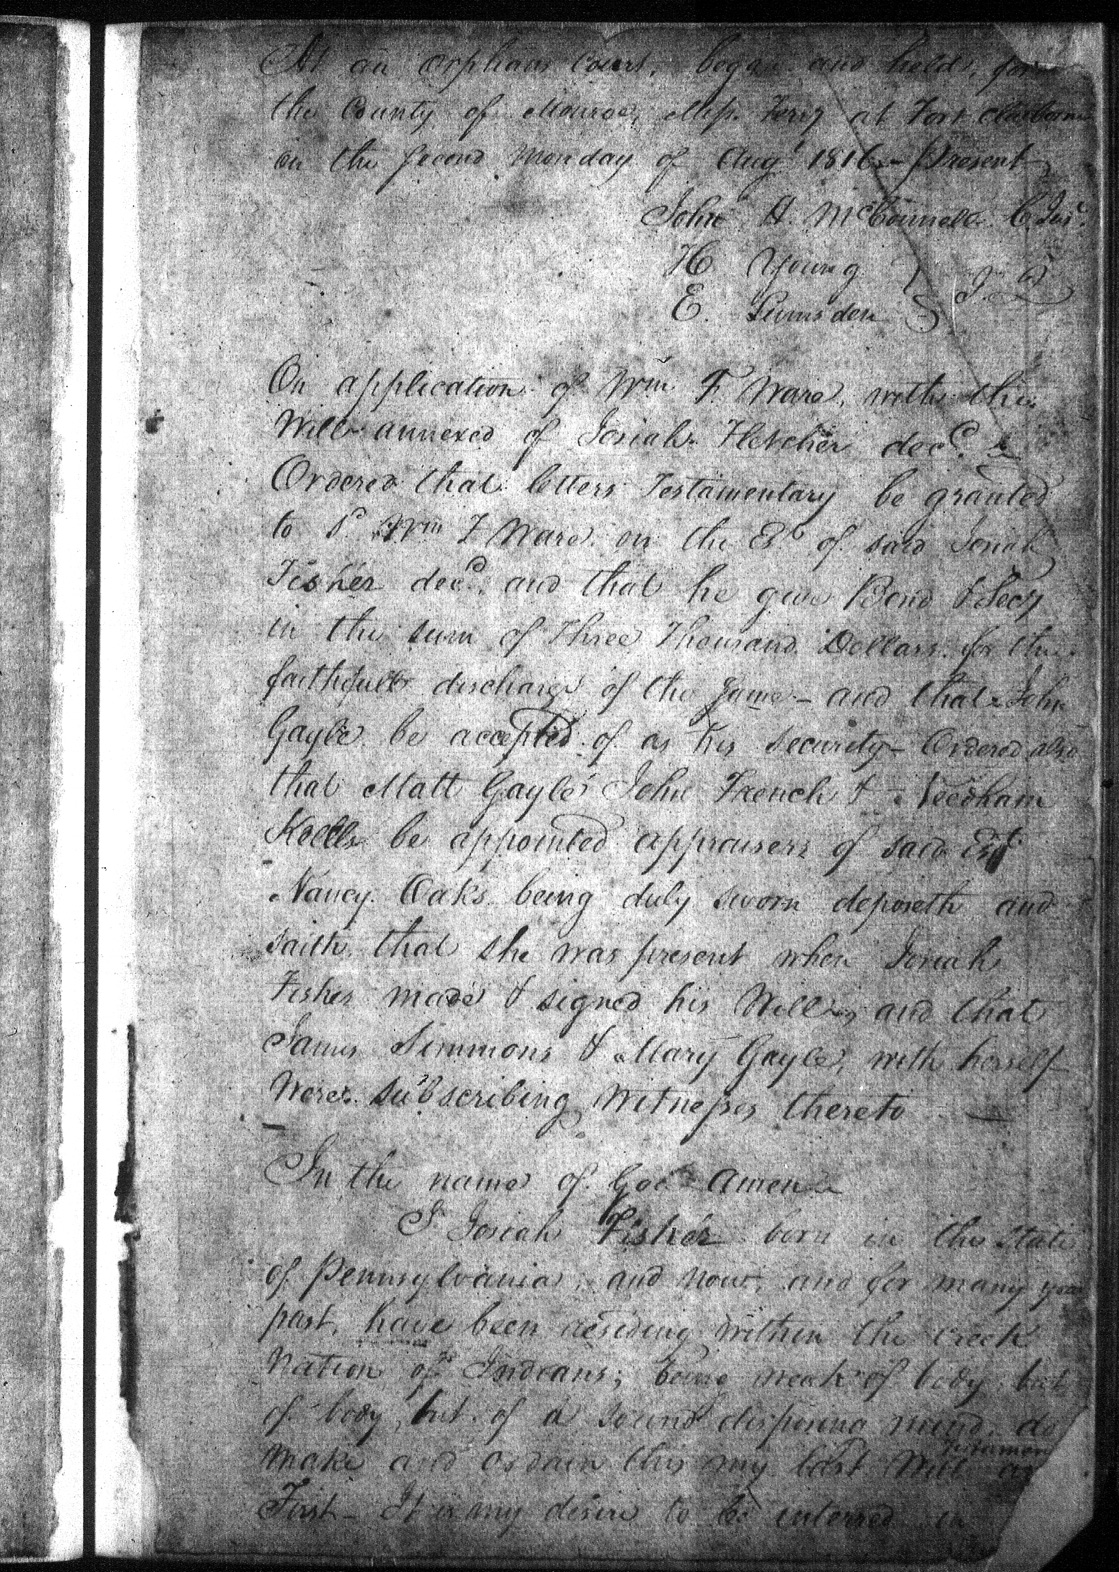 At an Orphans Court, began and held, for
the County of Monroe, Missi. Terry at Fort Claiborne
on the second Monday of Augt 1816 - Present
John H McConnell C. Jus.
H Young } J. Q
E. Lumsden
On application of Wm F. Ware, with the
Will annexed of Josiah Fletcher decd. is
Ordered that letters Testamentary be granted
to sd. Wm F Ware on the Es. of said Josiah
Fisher decd. and that he give Bond & Secy
in the sum of Three Thousand Dollars for the
faithfull discharge of the same - and that John
Gayle be accepted of as his security - Ordered also
that Matt Gayle John French & Needham
be appointed appraisers of said Est
Nancy Oaks being duly sworn deposeth and
saith that she was present when Josiah
Fisher made & signed his Will, and that
James Simmons & Mary Gayle, with herself
Were subscribing Witnesses thereto
In the name of God Amen
I Josiah Fisher born in the State
of Pennsylvania, and now, and for many years
past, have been residing within the creek
Nation of Indians; being weak of body but
of body, but of a sound disposing mind, do
Make and ordain this my last Will
First - It is my desire to be interred in